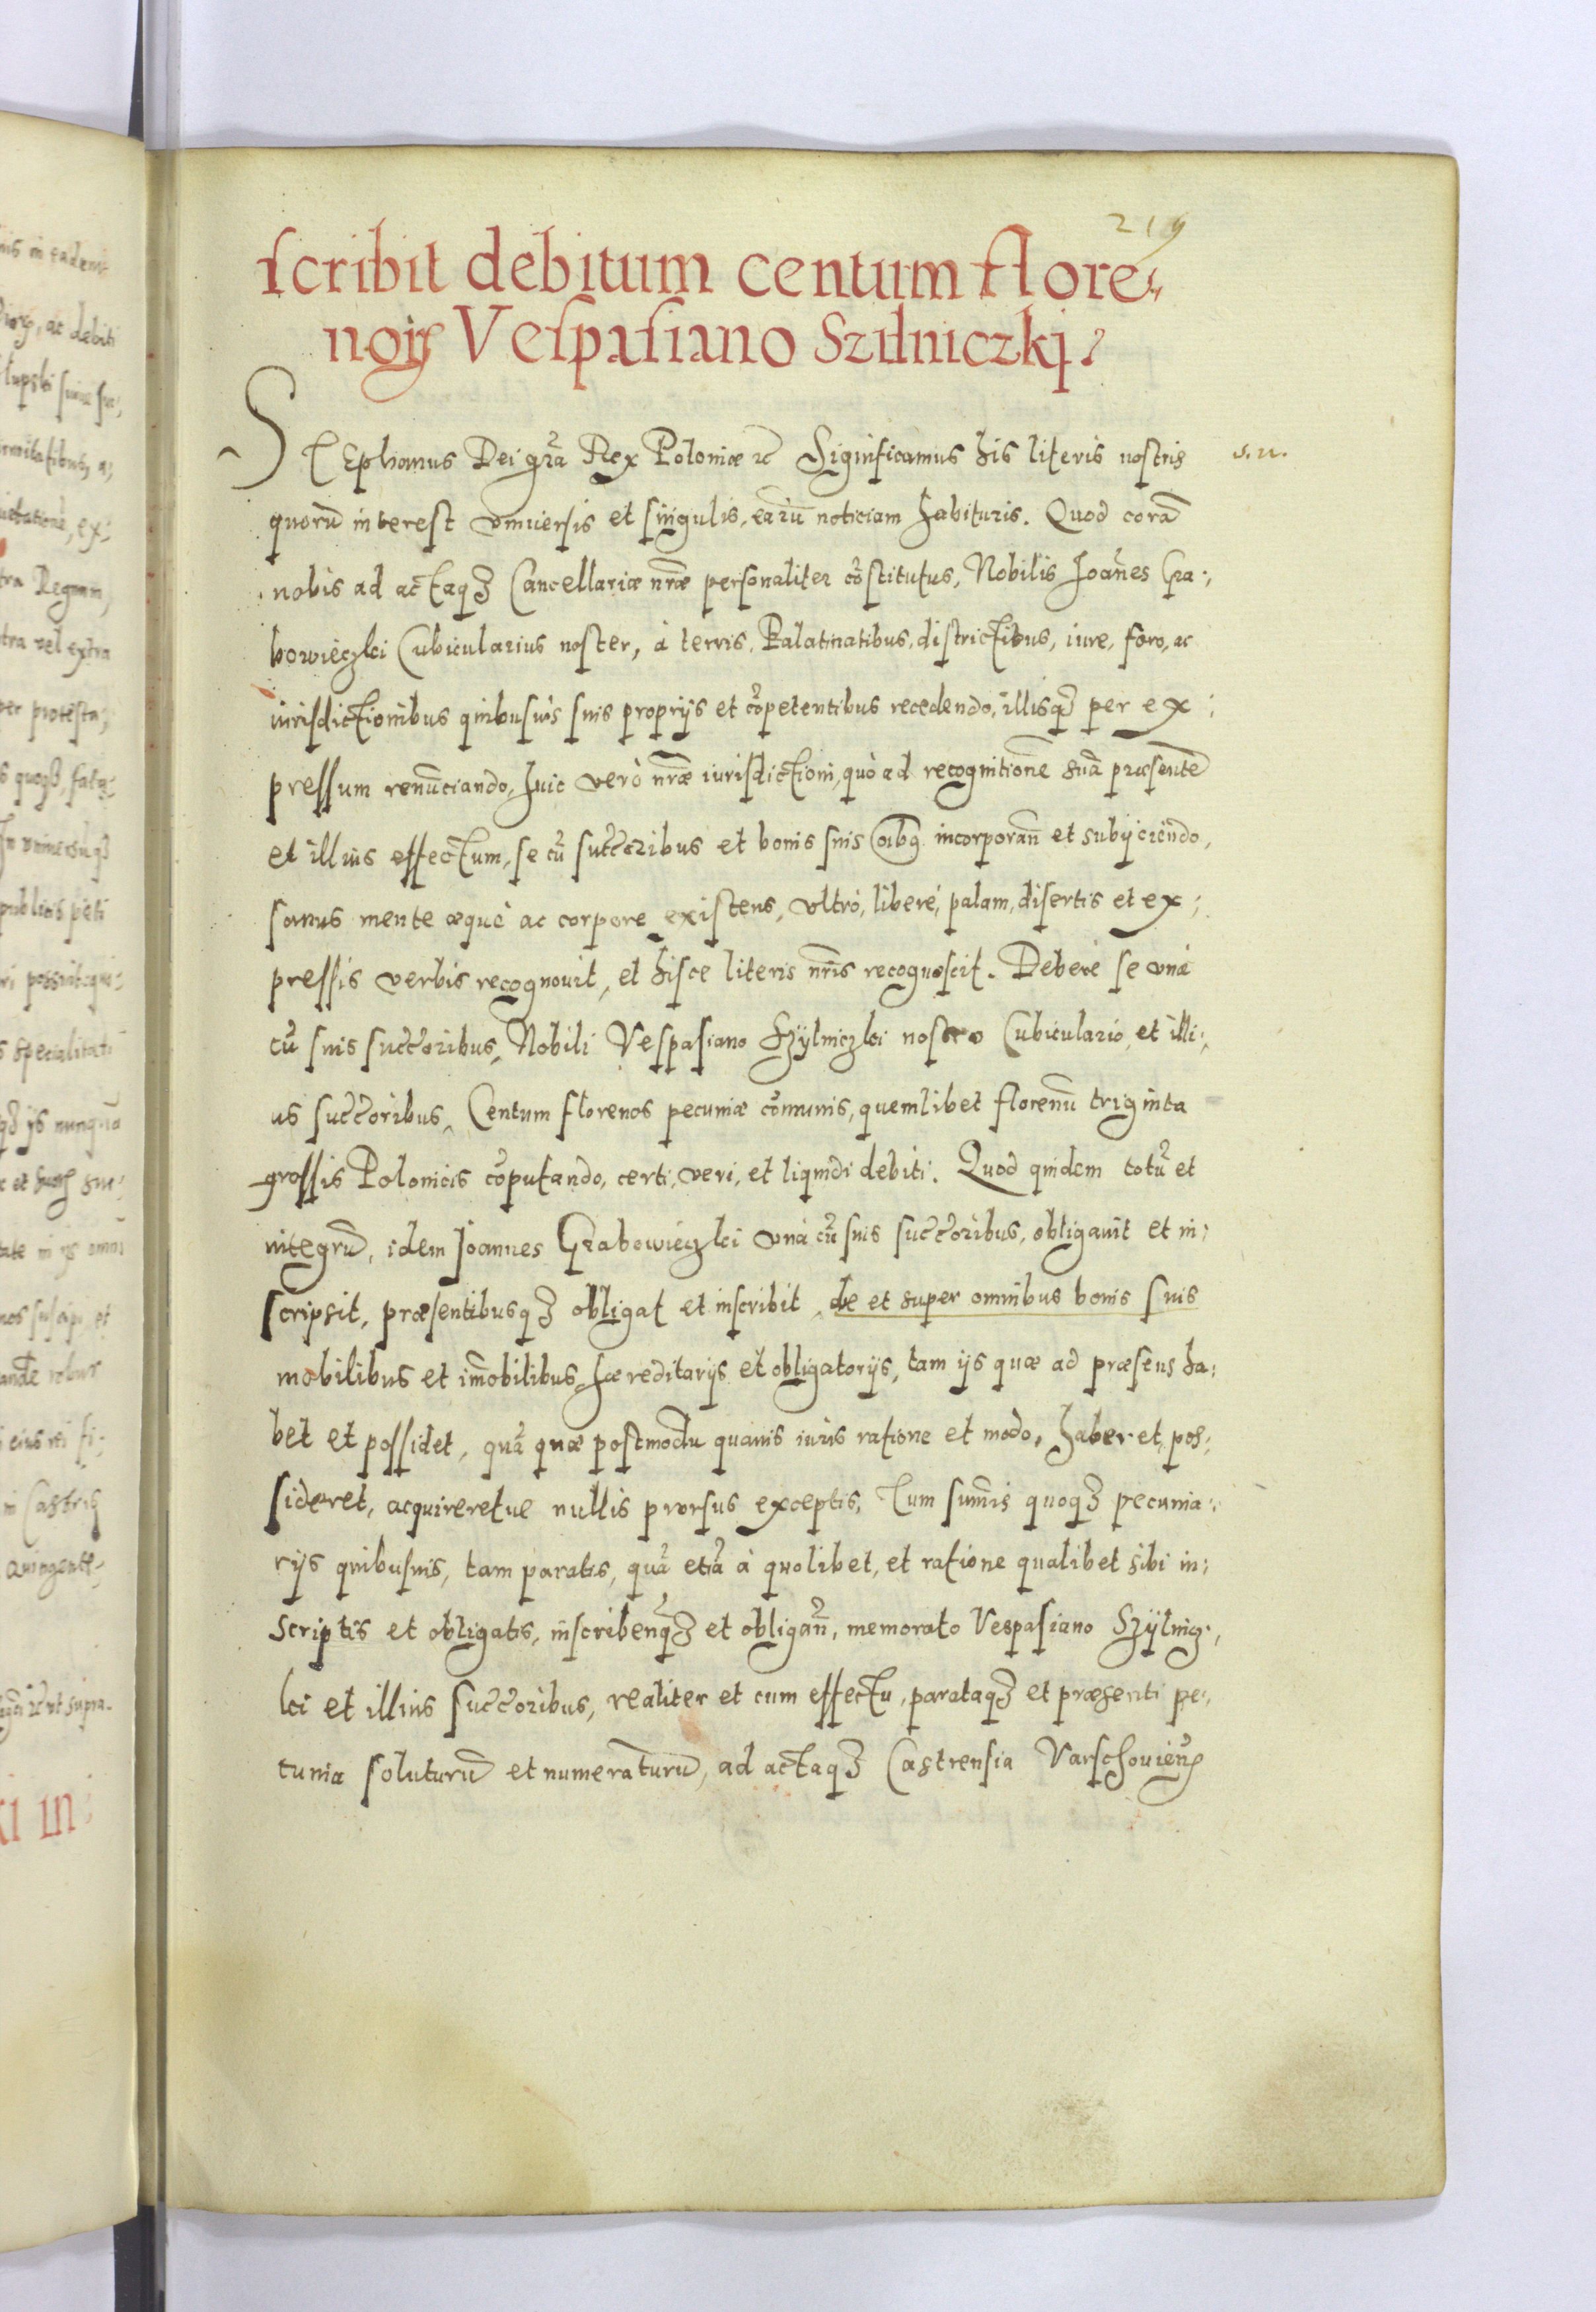 219
scribit debitum centum flore„
noꝝ Vespasiano Szilniczkj.
STEphanus Dei gr̃a Rex Poloniæ ꝛc̃ Significamus his literis nostris
s. n.
quorũ interest vniuersis et singulis, earũ noticiam habituris. Quod corã
nobis ad actaqꝫ Cancellariæ nr̃æ personaliter cõstitutus, Nobilis Joañes Gra„
bowieczki Cubicularius noster, à terris, Palatinatibus, districtibus, iure, foro, ac
iurisdictionibus quibusuis suis proprijs et cõpetentibus recedendo, illisqꝫ per ex„
pressum renũciando, huic verò nr̃æ iurisdictioni, quò ad recognitionẽ suã præsentẽ
et illius effectum, se cũ succ̃oribus et bonis suis oĩbꝯ incorporan̄ et subijciendo,
sanus mente æquè ac corpore existens, vltrò, liberè, palam, disertis et ex„
pressis verbis recognouit, et hisce literis nr̃is recognoscit. Debere se vnà
cũ suis succ̃oribus, Nobili Vespasiano Szÿlniczki nostro Cubiculario, et illi„
us succ̃oribus, Centum florenos pecuniæ cõmunis, quemlibet florenũ triginta
grossis Polonicis cõputando, certi, veri, et liquidi debiti. Quod quidem totũ et
integrũ, idem Joannes Grabowieczki vnà cũ suis succ̃oribus, obligauit et in„
scripsit, præsentibusqꝫ obligat et inscribit, de et super omnibus bonis suis
mobilibus et im̃obilibus, hæreditarijs et obligatorijs, tam ijs quæ ad præsens ha„
bet et possidet, quã quæ postmodũ quauis iuris ratione et modo, haberet, pos„
sideret, acquireretue nullis prorsus exceptis, Tum sum̃is quoqꝫ pecunia„
rijs quibusuis, tam paratis, quã etiã à quolibet, et ratione qualibet sibi in„
scriptis et obligatis, inscriben̄qꝫ et obligan̄, memorato Vespasiano Szÿlnicz„
ki et illius succ̃oribus, realiter et cum effectu, parataqꝫ et præsenti pe„
cunia soluturũ et numeraturũ, ad actaqꝫ Castrensia Varschouien̄